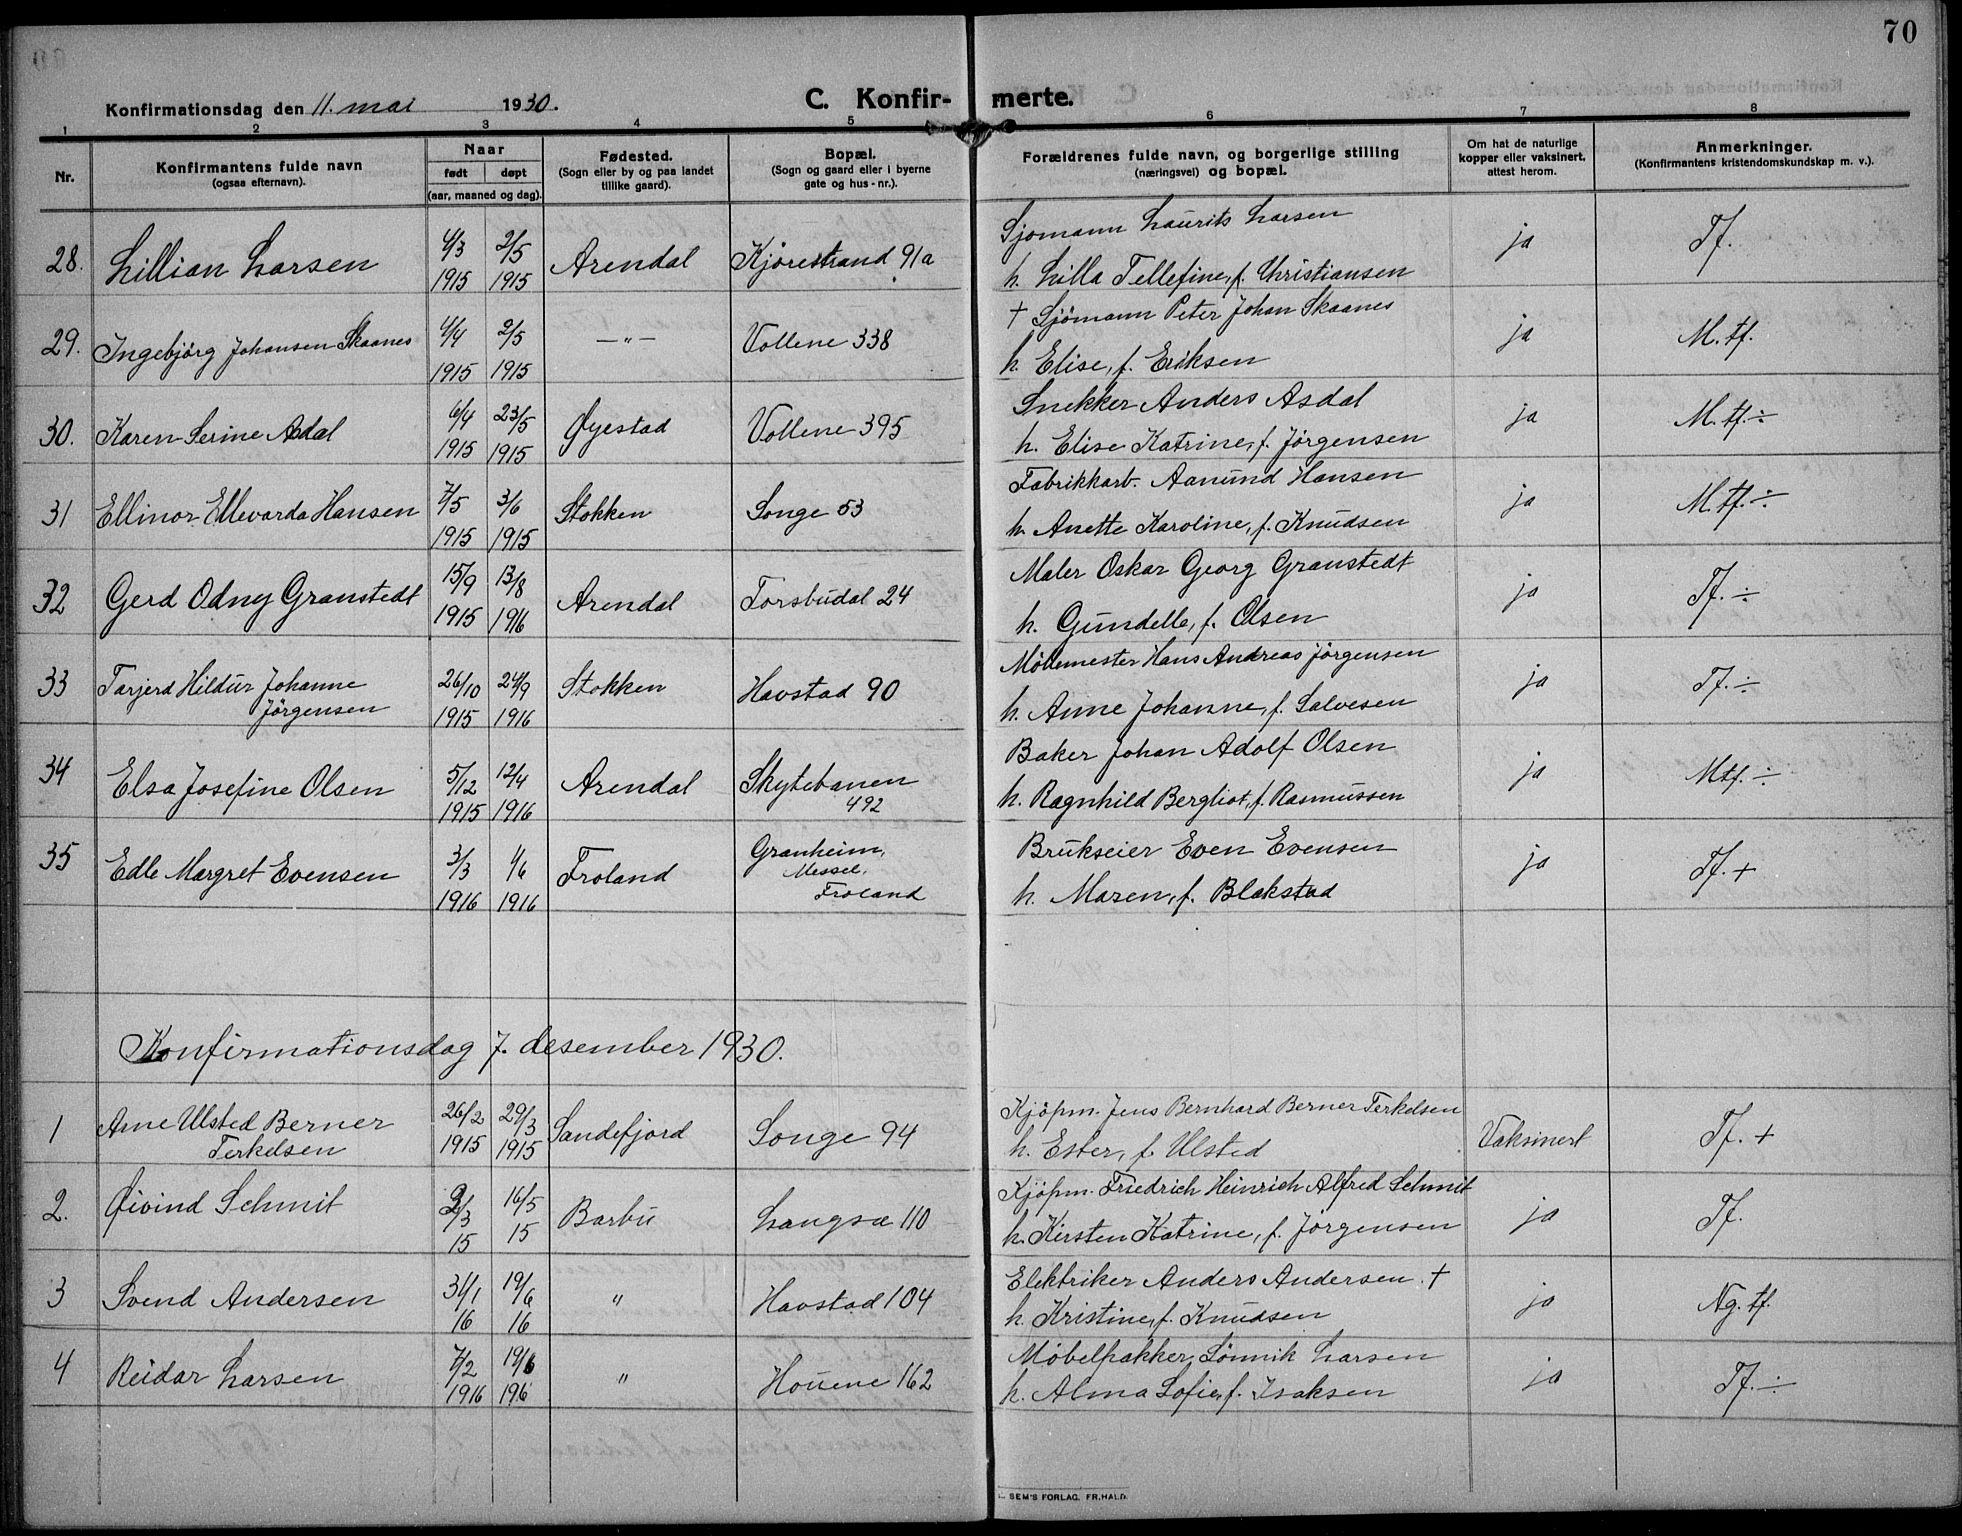 70
Konfirmationsdag den 11. mai 1930.
C. Konfir- merte.
1 2 3 4 5 6 7 8
Nr.
Konfirmantens fulde navn
(ogsaa efternavn).
Naar
født døpt
(aar, maaned og dag).
Fødested.
(Sogn eller by og paa landet
tillike gaard).
Bopæl.
(Sogn og gaard eller i byerne
gate og hus-nr.).
Forældrenes fulde navn, og borgerlige stilling
(næringsvei) og bopæl.
Om hat de naturlige
kopper eller vaksinert,
attest herom.
Anmerkninger.
(Konfirmantens kristendomskundskap m. v.).
28. Lillian Larsen 4/3 1915 2/5 1915 Arendal Kjørestrand 91a
Sjømann Laurits Larsen
h. Lilla Tellefine, f. Christiansen
ja Tf.
29. Ingebjørg Johansen Skaanes 4/4 1915 2/5 1915 —"— Vollene 338
+ Sjømann Peter Johan Skaanes
h. Elise, f. Eriksen
ja M. tf.
30. Karen Serine Asdal 6/4 1915 23/5 1915 Øyestad Vollene 395
Snekker Anders Asdal
h. Elise Katrine, f. Jørgensen
ja M. tf. ÷
31 Ellinor Ellevarda Hansen 7/5 1915 3/6 1915 Stokken Songe 53
Fabrikkarb. Aanund Hansen
h. Anette Karoline, f. Knudsen
ja M. tf. ÷
32 Gerd Odny Granstedt 15/9 1915 13/8 1916 Arendal Torsbudal 24
Maler Oskar Georg Granstedt
h. Gundelle, f. Olsen
ja Tf. ÷
33 Tarjerd Hildur Johanne
Jørgensen 26/10 1915 24/9 1916 Stokken Havstad 90
Møllemester Hans Andreas Jørgensen
h. Anne Johanne, f. Salvesen
ja Tf. ÷
34 Elsa Josefine Olsen 5/12 1915 12/4 1916 Arendal Skytebanen
492
Baker Johan Adolf Olsen
h. Ragnhild Bergliot, f. Rasmussen
ja Mtf. ÷
35 Edle Margret Evensen 3/3 1916 1/6 1916 Froland Granheim,
Messel,
Froland
Brukseier Even Evensen
h. Maren, f. Blakstad
ja Tf. +
Konfirmationsdag 7. desember 1930.
1 Arne Ulsted Berner
Terkelsen 26/2 1915 29/3 1915 Sandefjord Songe 94
Kjøpm. Jens Bernhard Berner Terkelsen
h. Ester, f. Ulsted
Vaksinert Tf. +
2. Øivind Schmit 2/3 15 16/5 15 Barbu Langsæ 110
Kjøpm. Friedrich Heinrich Alfred Schmit
h. Kirsten Katrine, f. Jørgensen
ja Tf.
3 Svend Andersen 31/1 16 19/6 16 " Havstad 104
Elektriker Anders Andersen. +
h. Kristine, f. Knudsen
ja Ng. tf.
4 Reidar Larsen 7/2 1916 19/6 1916 " Houene 162
Møbelpakker Sønnik Larsen
h. Alma Sofie, f. Isaksen
ja Tf. ÷
SEM'S FORLAG, FR.HALD.